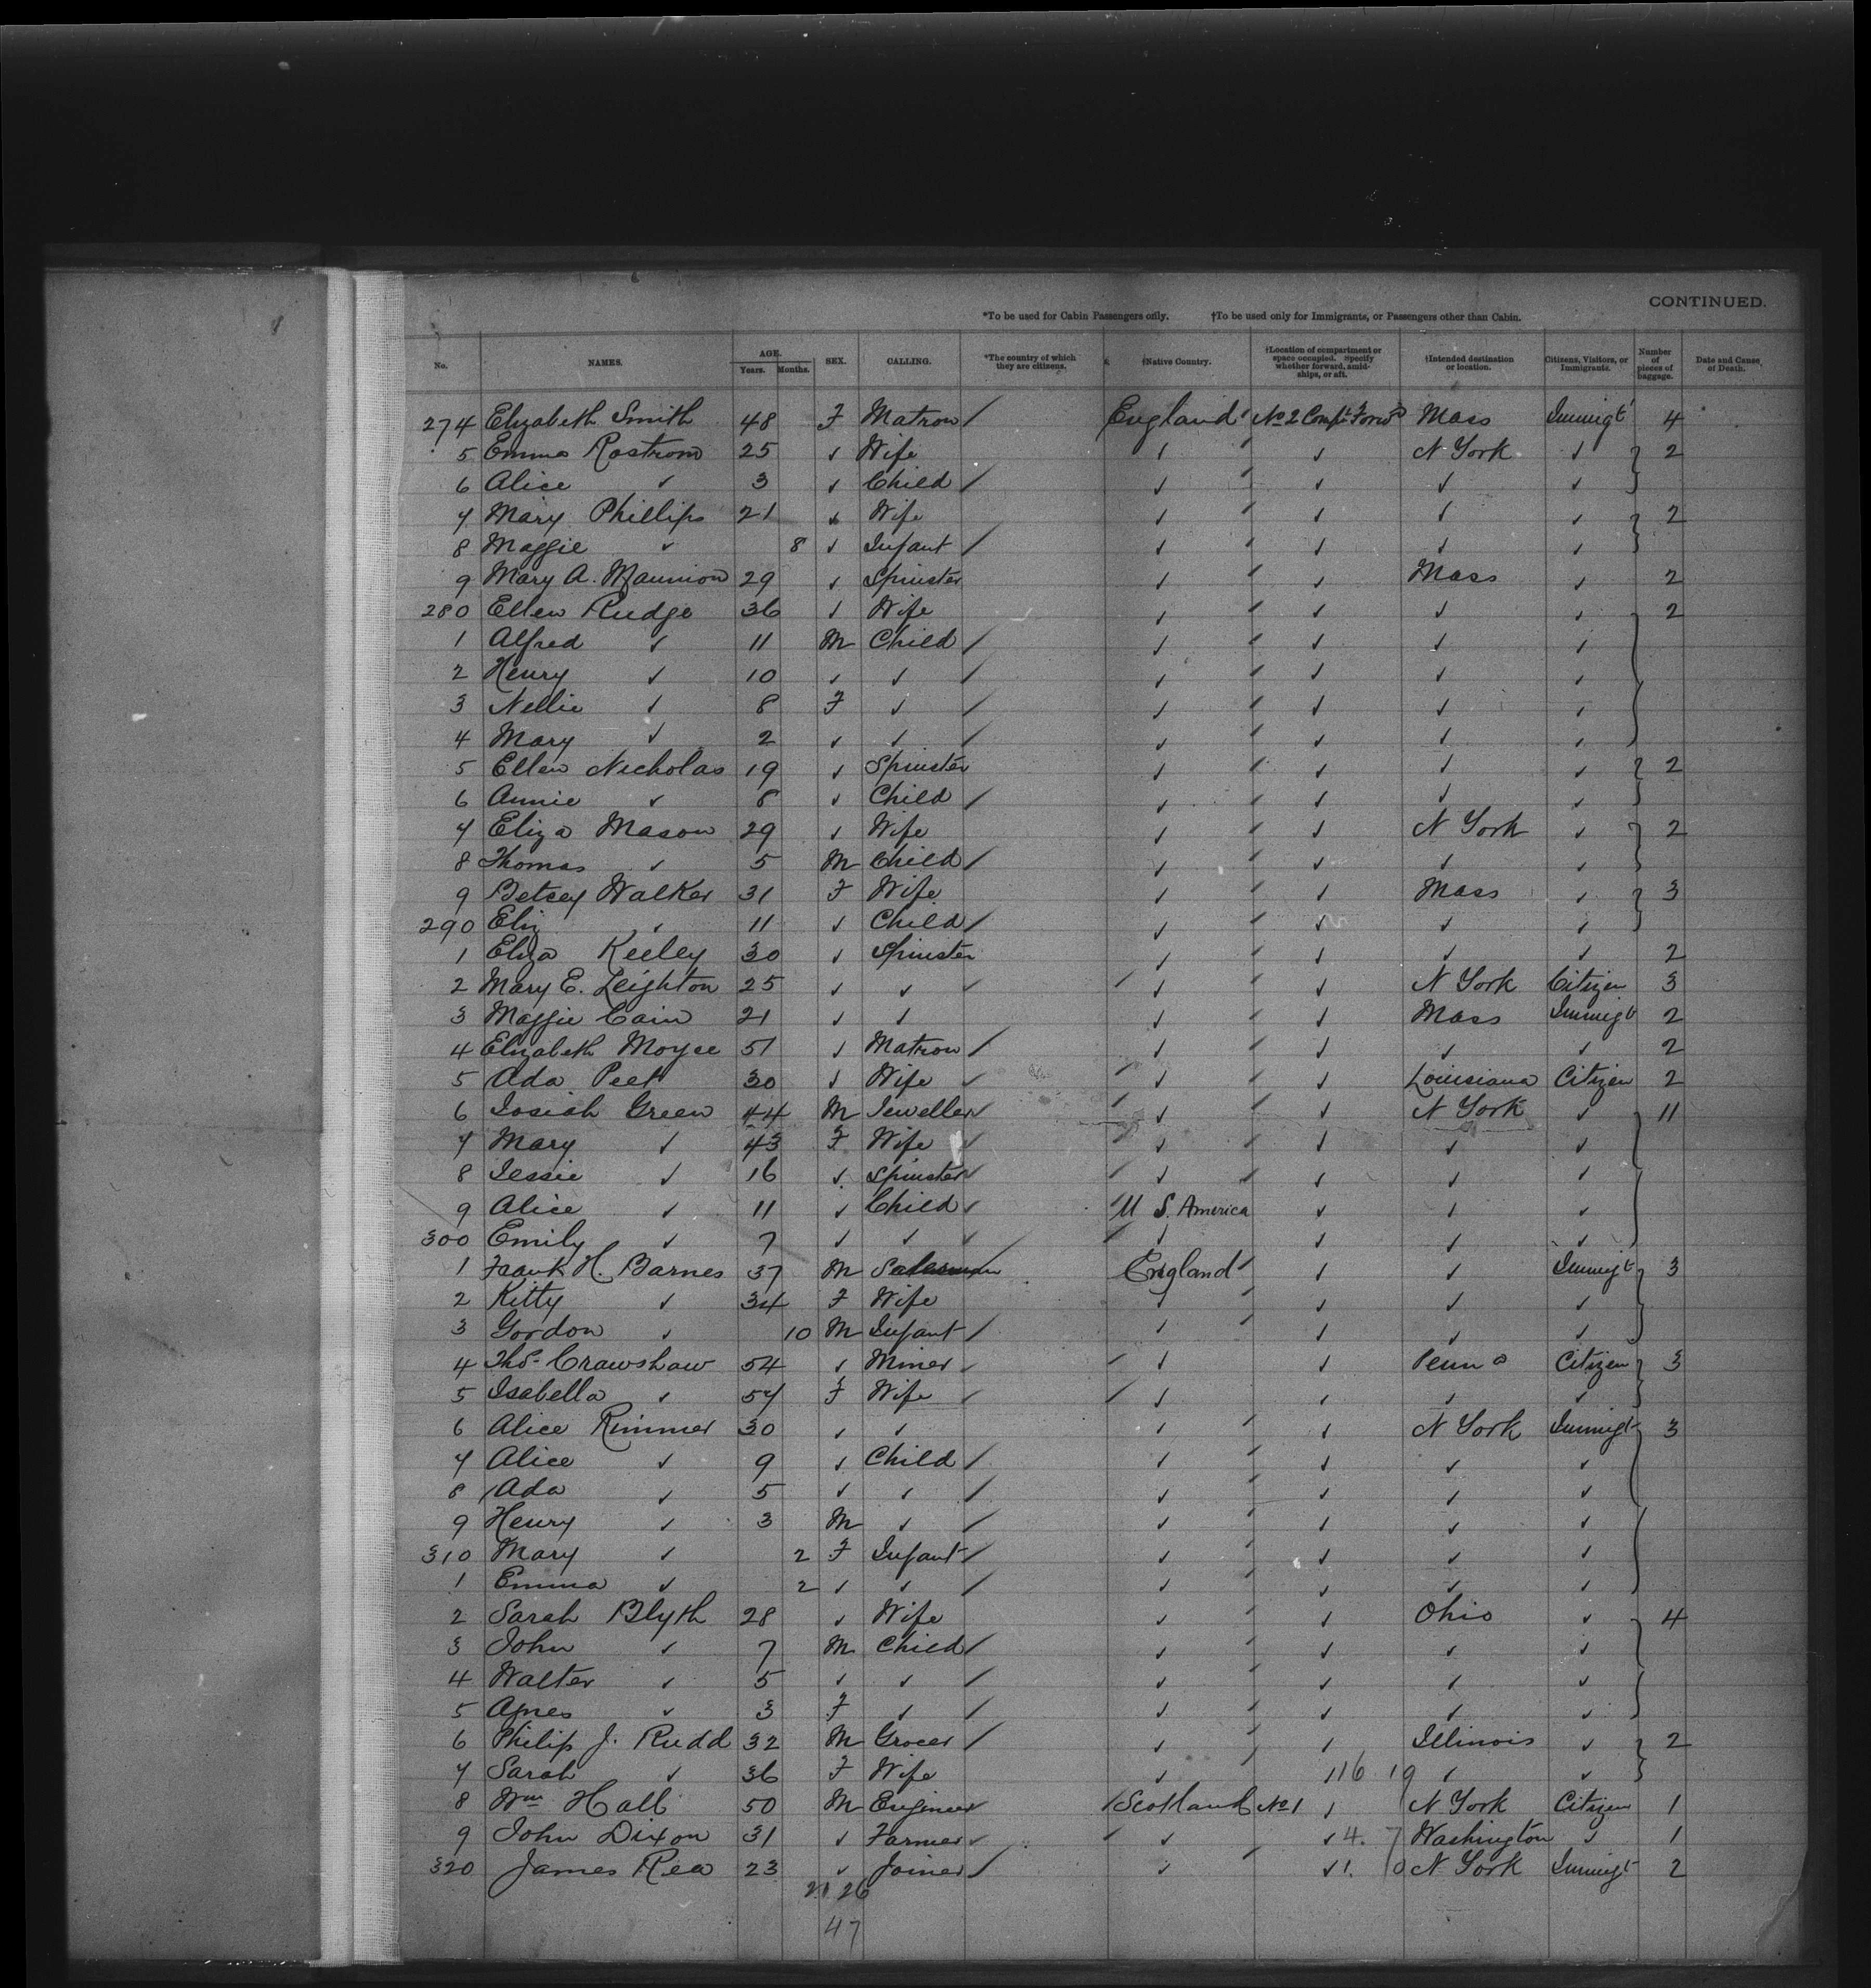 CONTINUED.
*To be used for Cabin Passengers only. †To be used only for Immigrants, or Passengers other than Cabin.
No. NAMES. AGE. Years. Months. SEX. CALLING. *The country of which they are citizens. †Native Country. †Location of compartment or space occupied. Specify whether forward, amidships, or aft. †Intended destination or location. Citizens, Visitors, or Immigrants. Number of pieces of baggage. Date and Cause of Death.
274 Elizabeth Smith 48 F Matron / England No 2 Compt Forwd Mass Immigt 4
5 Emma Rostrom 25 ✓ Wife ✓ ✓ N York ✓ 2
6 Alice ✓ 3 ✓ Child / ✓ ✓ ✓ ✓
7 Mary Phillips 21 ✓ Wife ✓ ✓ ✓ ✓ 2
8 Maggie ✓ 8 ✓ Infant / ✓ ✓ ✓ ✓
9 Mary A. Mannion 29 ✓ Spinster ✓ ✓ Mass ✓ 2
280 Ellen Rudge 36 ✓ Wife ✓ ✓ ✓ ✓ 2
1 Alfred ✓ 11 M Child / ✓ ✓ ✓ ✓
2 Henry ✓ 10 ✓ ✓ / ✓ ✓ ✓ ✓
3 Nellie ✓ 8 F ✓ / ✓ ✓ ✓ ✓
4 Mary ✓ 2 ✓ ✓ / ✓ ✓ ✓ ✓
5 Ellen Nicholas 19 ✓ Spinster ✓ ✓ ✓ ✓ 2
6 Annie ✓ 8 ✓ Child / ✓ ✓ ✓ ✓
7 Eliza Mason 29 ✓ Wife ✓ ✓ N York ✓ 2
8 Thomas ✓ 5 M Child / ✓ ✓ ✓ ✓
9 Betsey Walker 31 F Wife ✓ ✓ Mass ✓ 3
290 Eliz ✓ 11 ✓ Child / ✓ ✓ ✓ ✓
1 Eliza Keeley 30 ✓ Spinster ✓ ✓ ✓ ✓ 2
2 Mary E. Leighton 25 ✓ ✓ ✓ ✓ ✓ N York Citizen 3
3 Maggie Cain 21 ✓ ✓ ✓ ✓ Mass Immigt 2
4 Elizabeth Moyce 51 ✓ Matron / ✓ ✓ ✓ ✓ 2
5 Ada Peet 30 ✓ Wife ✓ ✓ ✓ Louisiana Citizen 2
6 Josiah Green 44 M Jeweller ✓ ✓ ✓ N York ✓ 11
7 Mary ✓ 43 F Wife ✓ ✓ ✓ ✓ ✓
8 Jessie ✓ 16 ✓ Spinster ✓ ✓ ✓ ✓ ✓
9 Alice ✓ 11 ✓ Child ✓ U S. America ✓ ✓ ✓
300 Emily ✓ 7 ✓ ✓ ✓ ✓ ✓ ✓ ✓
1 Frank H. Barnes 37 M Salesman England ✓ ✓ Immigt 3
2 Kitty ✓ 34 F Wife ✓ ✓ ✓ ✓
3 Gordon ✓ 10 M Infant / ✓ ✓ ✓ ✓
4 Thos. Crawshaw 54 ✓ Miner ✓ ✓ ✓ Penna Citizen 3
5 Isabella ✓ 57 F Wife ✓ ✓ ✓ ✓ ✓
6 Alice Rimmer 30 ✓ ✓ ✓ ✓ N York Immigt 3
7 Alice ✓ 9 ✓ Child / ✓ ✓ ✓ ✓
8 Ada ✓ 5 ✓ ✓ / ✓ ✓ ✓ ✓
9 Henry ✓ 3 M ✓ / ✓ ✓ ✓ ✓
310 Mary ✓ 2 F Infant / ✓ ✓ ✓ ✓
1 Emma ✓ 2 ✓ ✓ / ✓ ✓ ✓ ✓
2 Sarah Blyth 28 ✓ Wife ✓ ✓ Ohio ✓ 4
3 John ✓ 7 M Child / ✓ ✓ ✓ ✓
4 Walter ✓ 5 ✓ ✓ / ✓ ✓ ✓ ✓
5 Agnes ✓ 3 F ✓ / ✓ ✓ ✓ ✓
6 Philip J. Rudd 32 M Grocer / ✓ ✓ Illinois ✓ 2
7 Sarah ✓ 36 F Wife ✓ 116 19 ✓ ✓
8 Wm Hall 50 M Engineer ✓ Scotland No 1 ✓ N York Citizen 1
9 John Dixon 31 ✓ Farmer ✓ ✓ ✓ 4. 7 Washington ✓ 1
320 James Rea 23 ✓ Joiner / ✓ ✓ 1. 0 N York Immigt 2
21 26
47